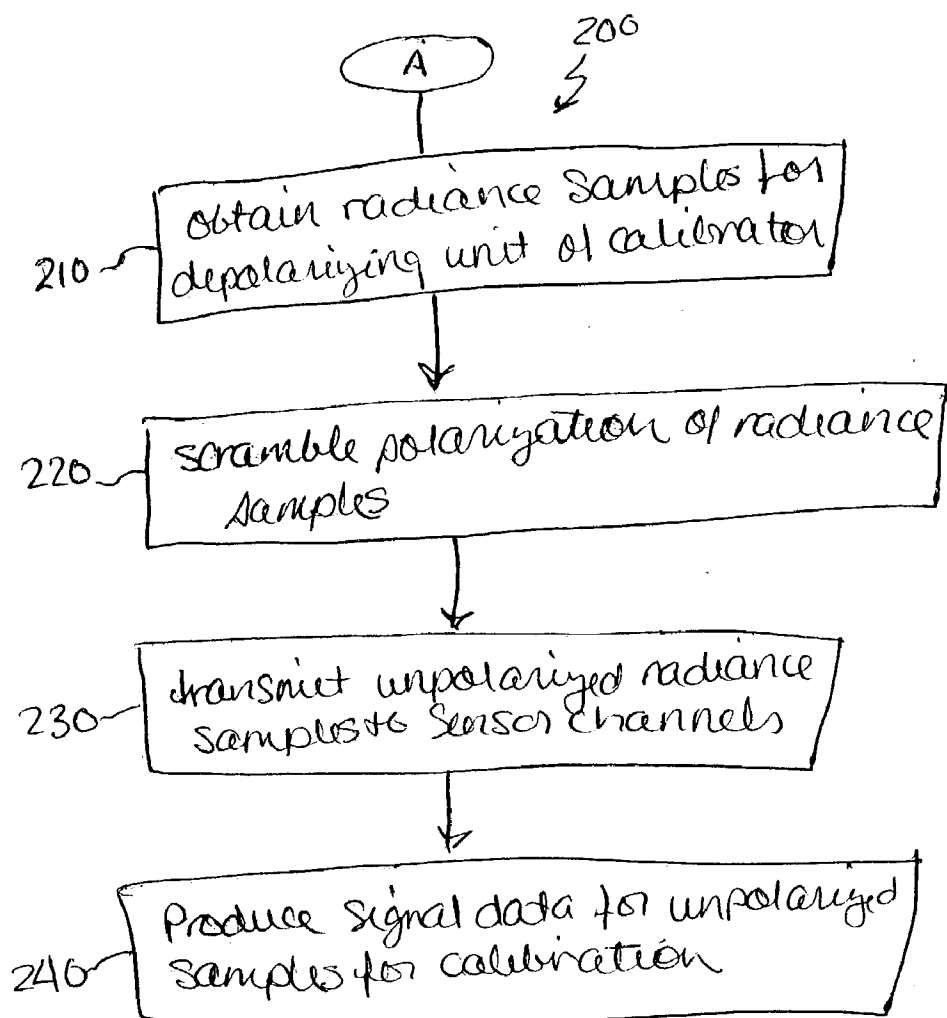 200
A
obtain radiance samples for
depolarizing unit of calibrator
210
scramble polarization of radiance
samples
220
transmit unpolarized radiance
samples to sensor channels
230
Produce signal data for unpolarized
samples for calibration
240